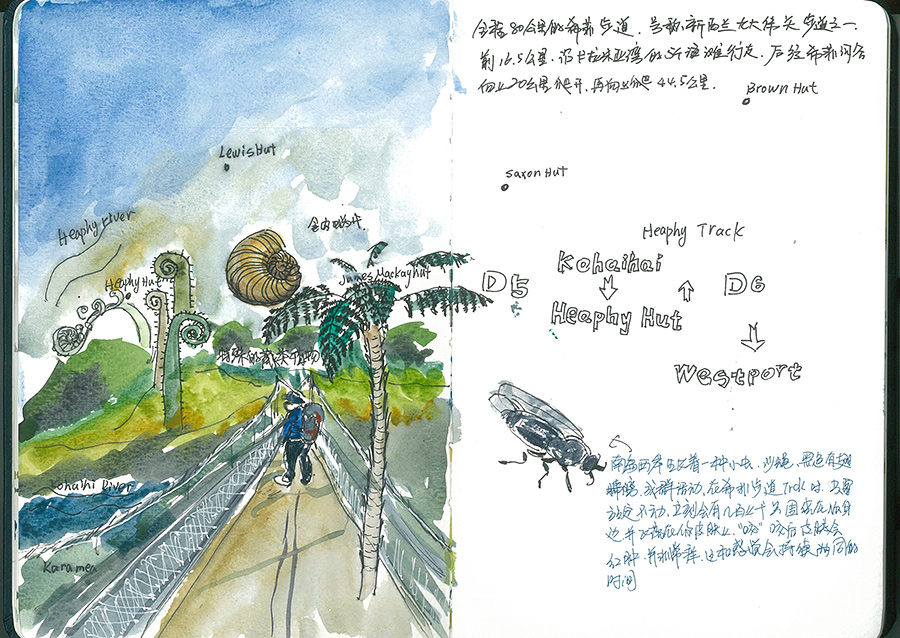 Lewis Hut
Heaphy River
Heaphy Hut
James Mackay hut
特殊的蕨类植物
Kohaihi River
Karamea
全程80公里的希菲步道，号称新西兰九大伟大步道之一
前16.5公里，沿卡拉米亚湾的
向上20公里爬升，再向上爬44.5公里．
Brown Hut
Saxon Hut
Heaphy Track
D5
Kohaihai
Heaphy Hut
D6
Westport
南岛西岸有着一种小虫，沙蝇，黑色有翅
成群活动，在希菲步道Trck时，只要
站定不动，立刻会有几百上千只围绕在你身
边并飞落在你皮肤上，"咬"咬后皮肤会
红肿，并很痒痒，这种感觉会持续两周的
时间